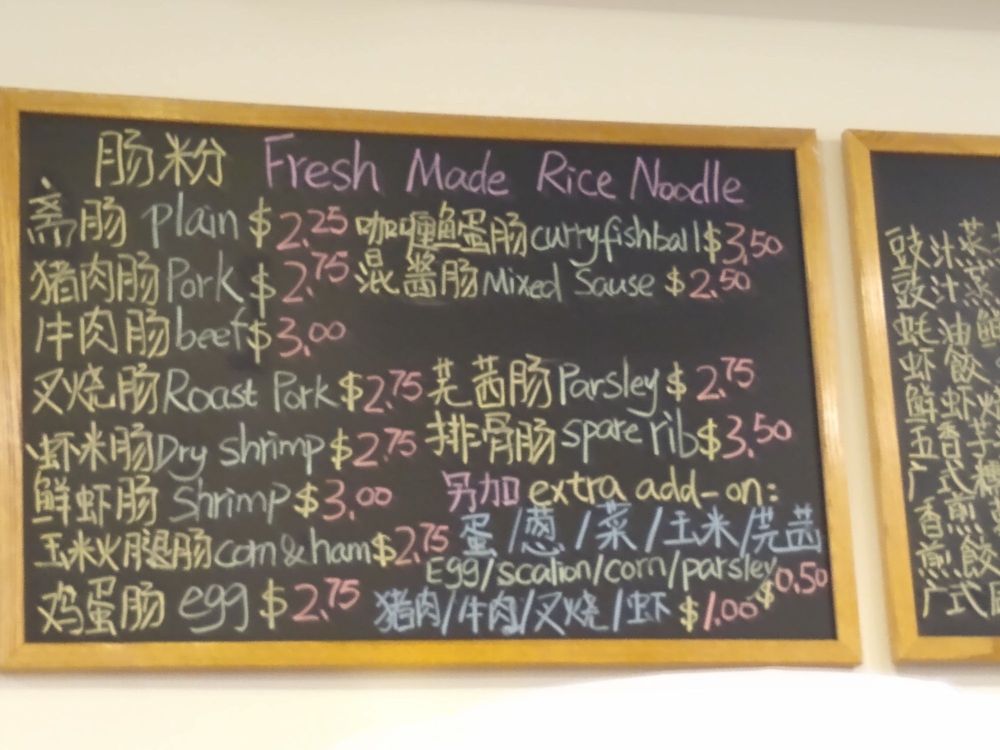 肠粉 Fresh Made Rice Noodle
斋肠 plain $2.25
猪肉肠 Pork $2.75
牛肉肠 beef $3.00
叉烧肠 Roast Pork $2.75
虾米肠 Dry shrimp $2.75
鲜虾肠 shrimp $3.00
玉米火腿肠 corn & ham $2.75
鸡蛋肠 egg $2.75
咖喱鱼蛋肠 curry fishball $3.50
混酱肠 Mixed Sause $2.50
芫茜肠 Parsley $2.75
排骨肠 spare rib $3.50
另加 extra add-on:
蛋/葱/菜/玉米/芫茜
Egg/scalion/corn/parsley $0.50
猪肉/牛肉/叉烧/虾 $1.00
豉汁蒸
豉汁蒸
蚝油鲜
虾餃
鲜虾
五香芋
广式
香煎
煎餃
广式